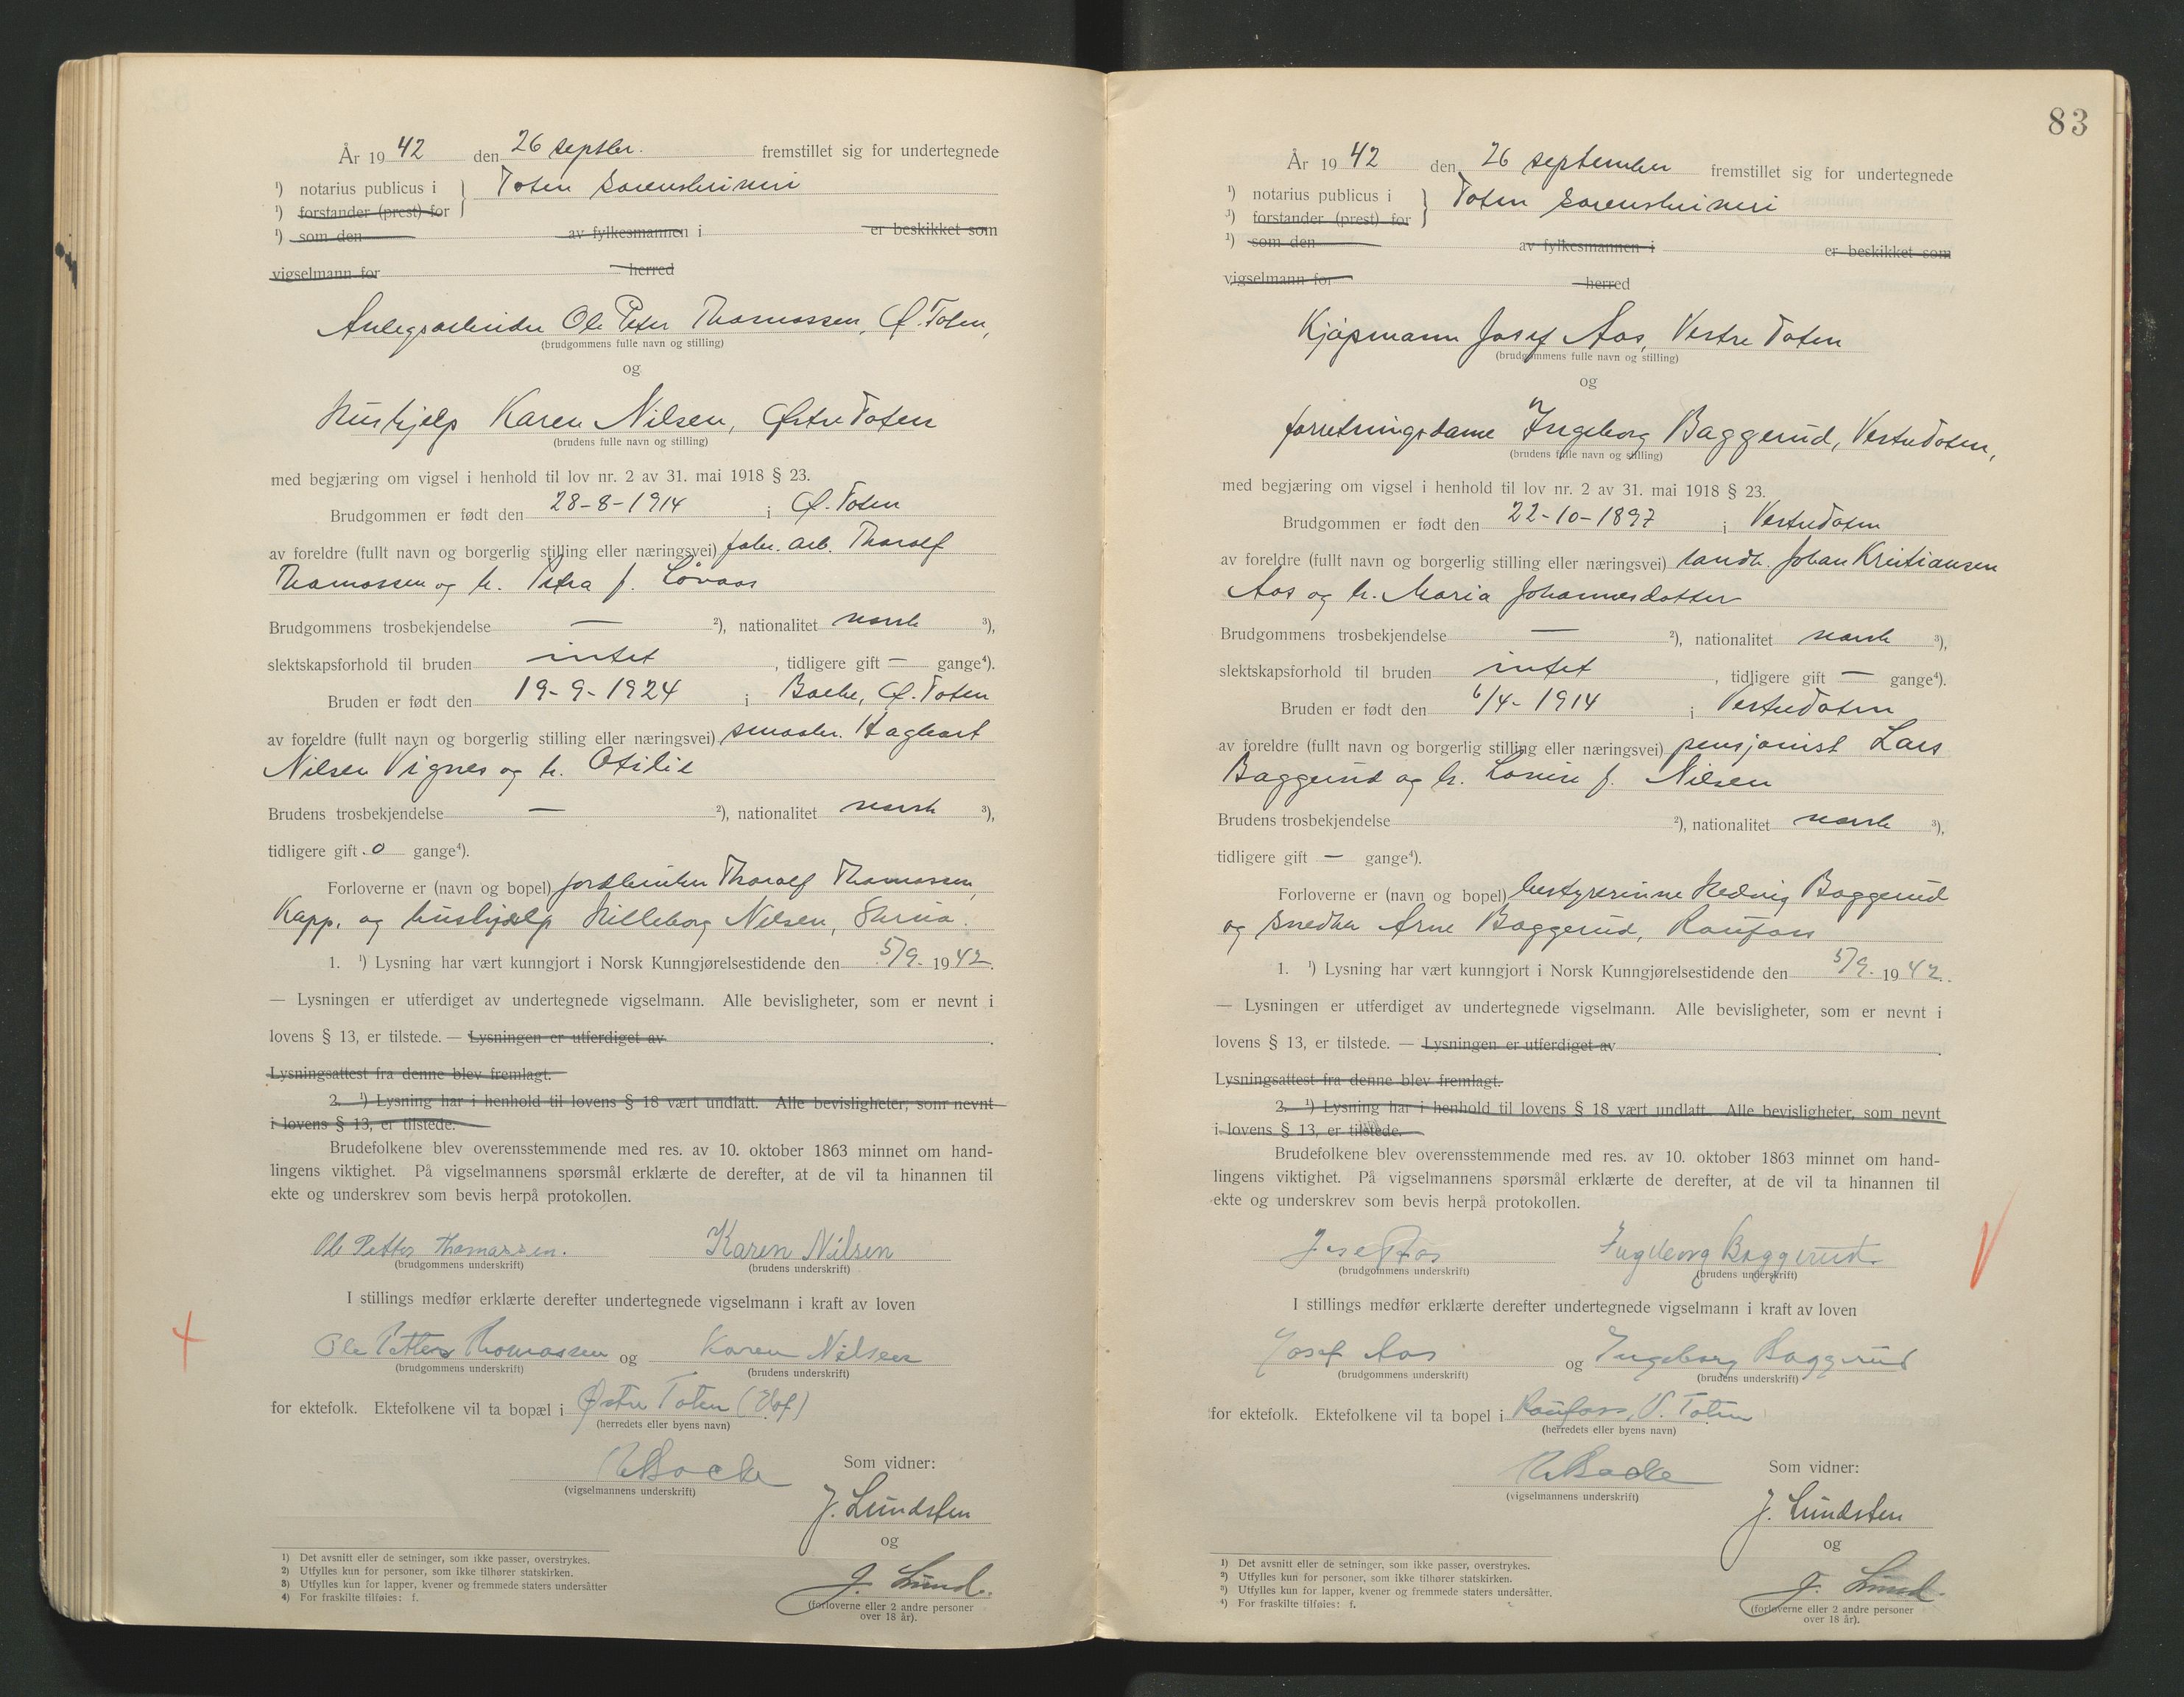 År 1942 den 26 septbr. fremstillet sig for undertegnede
¹) notarius publicus i } Toten sorenskriveri
¹) forstander (prest) for
¹) som den av fylkesmannen i er beskikket som
vigselmann for herred
Anlegsarbeider Ole Peter Thomassen, Ø. Toten,
(brudgommens fulle navn og stilling)
og
Hushjelp Karen Nilsen, Østre Toten
(brudens fulle navn og stilling)
med begjæring om vigsel i henhold til lov nr. 2 av 31. mai 1918 § 23.
Brudgommen er født den 28-8-1914 i Ø. Toten
av foreldre (fullt navn og borgerlig stilling eller næringsvei) fabr. arb. Thorolf
Thomassen og h. Petra f. Løvaas
Brudgommens trosbekjendelse — ²), nationalitet norsk ³),
slektskapsforhold til bruden intet, tidligere gift — gange⁴).
Bruden er født den 19-9-1924 i Balke, Ø. Toten
av foreldre (fullt navn og borgerlig stilling eller næringsvei) smaabr. Hagbart
Nilsen Vignes og h. Otilie
Brudens trosbekjendelse — ²), nationalitet norsk ³),
tidligere gift 0 gange⁴).
Forloverne er (navn og bopel) jordbruker Thorolf Thomassen,
Kapp. og hushjælp Hilleborg Nilsen, Skreia.
1. ¹) Lysning har vært kunngjort i Norsk Kunngjørelsestidende den 5/9. 1942.
— Lysningen er utferdiget av undertegnede vigselmann. Alle bevisligheter, som er nevnt i
lovens § 13, er tilstede. — Lysningen er utferdiget av
Lysningsattest fra denne blev fremlagt.
2. ¹) Lysning har i henhold til lovens § 18 vært undlatt. Alle bevisligheter, som nevnt
i lovens § 13, er tilstede.
Brudefolkene blev overensstemmende med res. av 10. oktober 1863 minnet om hand-
lingens viktighet. På vigselmannens spørsmål erklærte de derefter, at de vil ta hinannen til
ekte og underskrev som bevis herpå protokollen.
Ole Petter Thomassen. Karen Nilsen
(brudgommens underskrift) (brudens underskrift)
I stillings medfør erklærte derefter undertegnede vigselmann i kraft av loven
Ole Petter Thomassen og Karen Nilsen
(brudgommens underskrift) (brudens underskrift)
for ektefolk. Ektefolkene vil ta bopæl i Østre Toten (Hof)
(herredets eller byens navn)
(vigselmannens underskrift)
Som vidner:
J. Lundsten
og
J. Lund.
(forloverne eller 2 andre personer
over 18 år).
1) Det avsnitt eller de setninger, som ikke passer, overstrykes.
2) Utfylles kun for personer, som ikke tilhører statskirken.
3) Utfylles kun for lapper, kvener og fremmede staters undersåtter
4) For fraskilte tilføies: f.
83
År 1942 den 26 september fremstillet sig for undertegnede
¹) notarius publicus i } Toten sorenskriveri
¹) forstander (prest) for
¹) som den av fylkesmannen i er beskikket som
vigselmann for herred
Kjøpmann Josef Aos, Vestre Toten
(brudgommens fulle navn og stilling)
og
forretningsdame Ingeborg Baggerud, Vestre Toten,
(brudens fulle navn og stilling)
med begjæring om vigsel i henhold til lov nr. 2 av 31. mai 1918 § 23.
Brudgommen er født den 22-10-1897 i Vestre Toten
av foreldre (fullt navn og borgerlig stilling eller næringsvei) landh. Johan Kristiansen
Aos og h. Maria Johannesdatter
Brudgommens trosbekjendelse — ²), nationalitet norsk ³),
slektskapsforhold til bruden intet, tidligere gift — gange⁴).
Bruden er født den 6/4-1914 i Vestre Toten
av foreldre (fullt navn og borgerlig stilling eller næringsvei) pensjonist Lars
Baggerud og h. Lovise f. Nilsen
Brudens trosbekjendelse ²), nationalitet norsk ³),
tidligere gift — gange⁴).
Forloverne er (navn og bopel) bestyrerinne Hedvig Baggerud
og snedker Arne Baggerud, Raufoss
1. ¹) Lysning har vært kunngjort i Norsk Kunngjørelsestidende den 5/9. 1942.
— Lysningen er utferdiget av undertegnede vigselmann. Alle bevisligheter, som er nevnt i
lovens § 13, er tilstede. — Lysningen er utferdiget av
Lysningsattest fra denne blev fremlagt.
2. ¹) Lysning har i henhold til lovens § 18 vært undlatt. Alle bevisligheter, som nevnt
i lovens § 13, er tilstede.
Brudefolkene blev overensstemmende med res. av 10. oktober 1863 minnet om hand-
lingens viktighet. På vigselmannens spørsmål erklærte de derefter, at de vil ta hinannen til
ekte og underskrev som bevis herpå protokollen.
Josef Aos Ingeborg Baggerud.
(brudgommens underskrift) (brudens underskrift)
I stillings medfør erklærte derefter undertegnede vigselmann i kraft av loven
Josef Aos og Ingeborg Baggerud
(brudgommens underskrift) (brudens underskrift)
for ektefolk. Ektefolkene vil ta bopel i Raufoss, V. Toten
(herredets eller byens navn)
(vigselmannens underskrift)
Som vidner:
J. Lundsten
og
J. Lund.
(forloverne eller 2 andre personer
over 18 år).
1) Det avsnitt eller de setninger, som ikke passer, overstrykes.
2) Utfylles kun for personer, som ikke tilhører statskirken.
3) Utfylles kun for lapper, kvener og fremmede staters undersåtter.
4) For fraskilte tilføies: f.